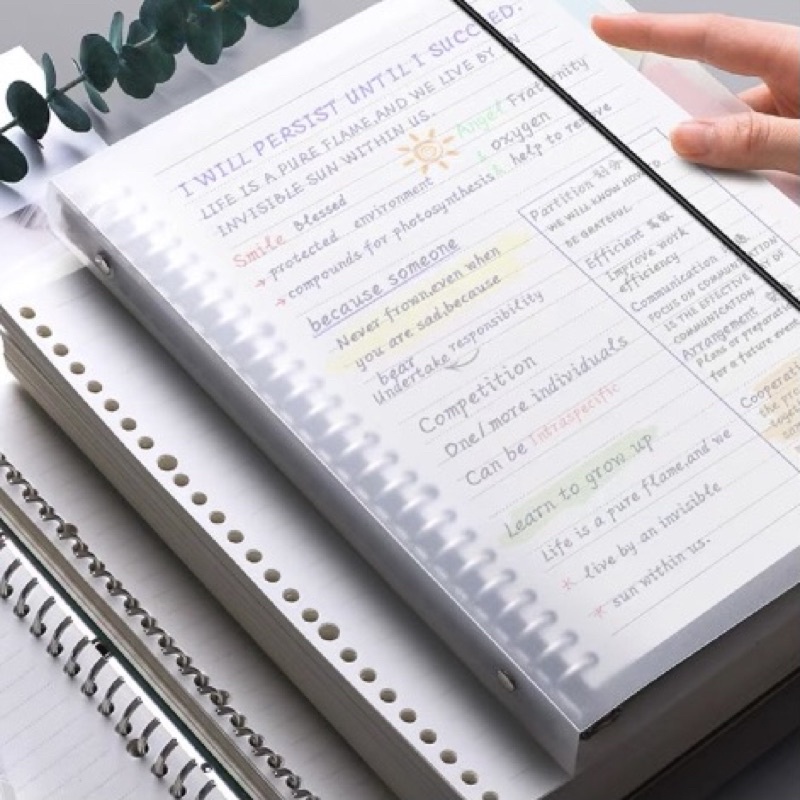 I WILL PERSIST UNTIL I SUCCEED.
LIFE IS A PURE FLAME, AND WE LIVE BY AN
INVISIBLE SUN WITHIN US.
Angel Fraternity
Smile Blessed
oxygen
→ protected environment
help to remove
→ compounds for photosynthesis
because someone
Never frown, even when
you are sad, because
bear
Undertake responsibility
Competition
One/more individuals
Can be Intraspecific
Learn to grow up
Life is a pure flame, and we
live by an invisible
sun within us.
Partition
WE WILL KNOW HOW TO
BE GRATEFUL
Efficient
Improve work
efficiency
Communication
FOCUS ON COMMUNICATION
IS THE EFFECTIVE OF
COMMUNICATION
Arrangement
Plans or preparation
for a future event
Cooperati
the pro
toget